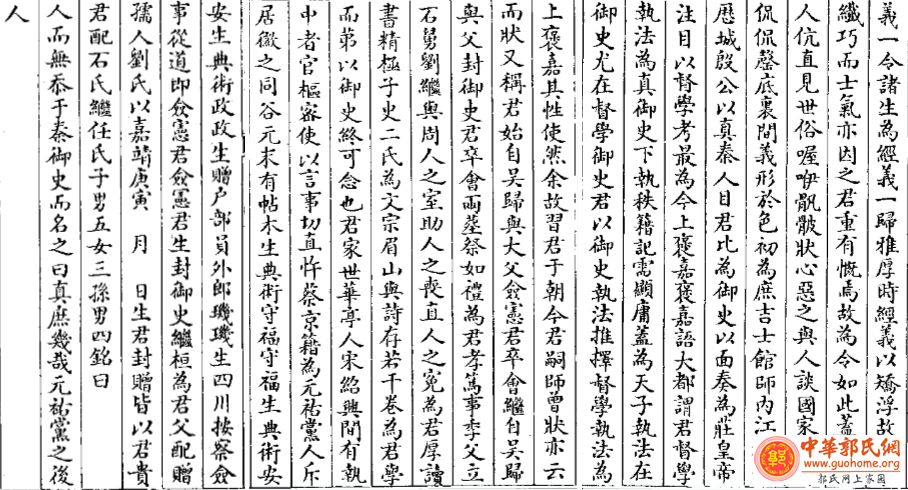 義一令諸生為經義一歸雅厚時經義以矯浮故
纖巧而士氣亦因之君重有慨焉故為令如此蓋
人伉直見世俗喔咿骫骳狀心惡之與人談國家
侃侃罄底裏間義形於色初為庶吉士館師內江
歷城殷公以真秦人目君比為御史以面奏為莊皇帝
注目以督學考最為今上褒嘉褒嘉語大都謂君督學
執法為真御史下執秩籍記需顯庸蓋為天子執法在
御史尤在督學御史君以御史執法推擇督學執法為
上褒嘉其性使然余故習君于朝今君嗣師曾狀亦云
而狀又稱君始自吳歸與大父僉憲君卒會繼自吳歸
與父封御史君卒會兩塟祭如禮為君孝篤事季父立
石舅劉繼與周人之室助人之喪直人之冤為君厚讀
書精極子史二氏為文宗眉山與詩存若干卷為君學
而第以御史終可念也君家世華亭人宋紹興間有執
中者官樞密使以言事切直忤蔡京籍為元祐黨人斥
居徽之同谷元末有帖木生典術守福守福生典術安
安生典術政政生贈戶部員外郎璣璣生四川按察僉
事從道即僉憲君僉憲君生封御史繼桓為君父配贈
孺人劉氏以嘉靖庚寅　月　日生君封贈皆以君貴
君配石氏繼任氏子男五女三孫男四銘曰
人而無忝于秦御史而名之曰真庶幾哉元祐黨之後
人
中華郭氏网
www.guohome.org
郭氏网上家園